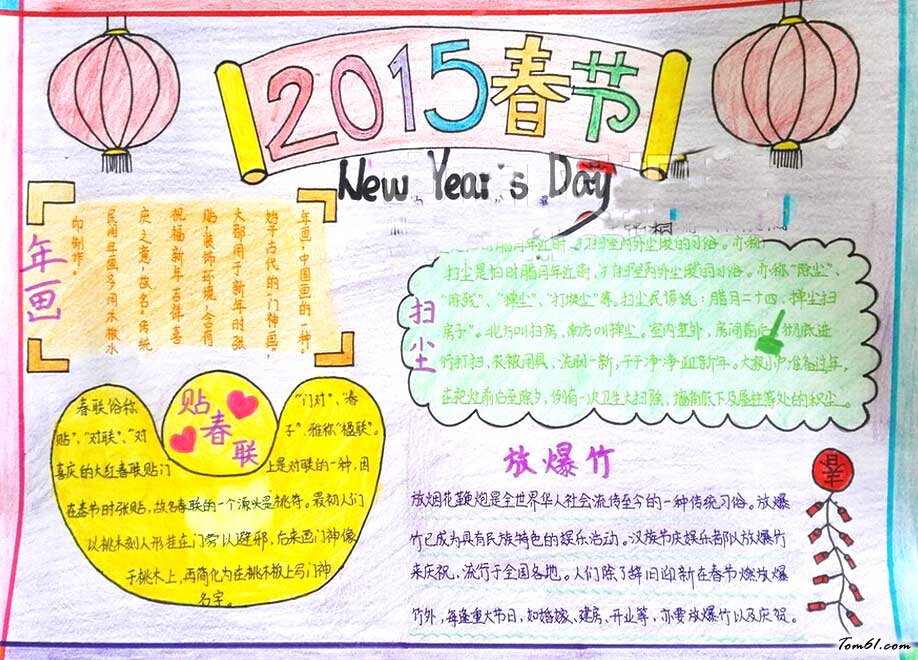 2015春节
New Year's Day
年画
年画,中国画的一种。
始于古代的"门神画"。
大都用于新年时张
贴,装饰环境,含有
祝福新年吉祥喜
庆之意,故名。传统
民间年画多用木板水
印制作。
扫尘
腊月年近时,扫室内外尘埃的习俗。亦称
扫尘是扫时腊月年近时,扫室内外尘埃的习俗。亦称"除尘"、
"除残"、"掸尘"、"打埃尘"等。扫尘民谚说:腊月二十四,掸尘扫
房子"。北方叫扫房,南方叫掸尘。室内室外,房间前后,彻底进
行打扫,衣被用具,洗刷一新,干干净净迎新年。大家小户准备过年,
在祀灶前后至除夕,例有一次卫生大扫除,墙角床下及屋柱等处的积尘。
贴春联
春联俗称 "门对"、"春
贴"、"对联"、"对 子",雅称"楹联"。
喜庆的大红春联贴门 上是对联的一种,因
在春节时张贴,故名春联的一个源头是桃符。最初人们
以桃木刻人形挂在门旁以避邪,后来画门神像
于桃木上,再简化为在桃木板上写门神
名字。
放爆竹
放烟花鞭炮是全世界华人社会流传至今的一种传统习俗。放爆
竹已成为具有民族特色的娱乐活动。汉族节庆娱乐都以放爆竹
来庆祝,流行于全国各地。人们除了辞旧迎新在春节燃放爆
竹外,每逢重大节日,如婚嫁、建房、开业等,亦要放爆竹以及庆贺。
春
Tom61.com